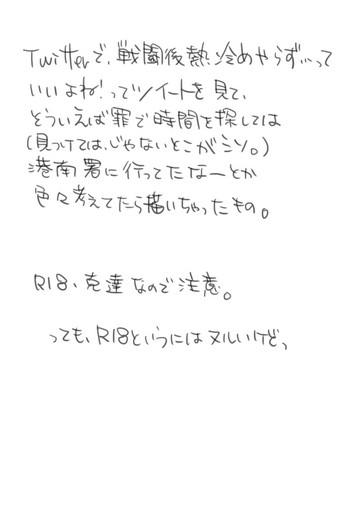 Twitterで、戦闘後熱冷めやらず…って
いいよね!ってツイートを見て、
そういえば罪で時間を探しては
(見つけては、じゃないとこがミソ。)
港南署に行ってたなーとか
色々考えてたら描いちゃったもの。
R18、克達なので注意。
っても、R18というにはヌルいけどっ